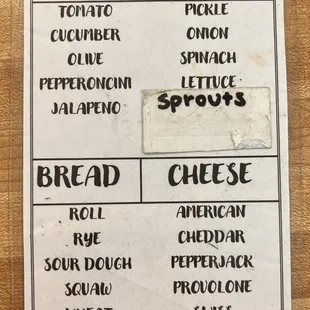 TOMATO PICKLE
CUCUMBER ONION
OLIVE SPINACH
PEPPERONCINI LETTUCE
JALAPENO Sprouts
BREAD CHEESE
ROLL AMERICAN
RYE CHEDDAR
SOUR DOUGH PEPPERJACK
SQUAW PROVOLONE